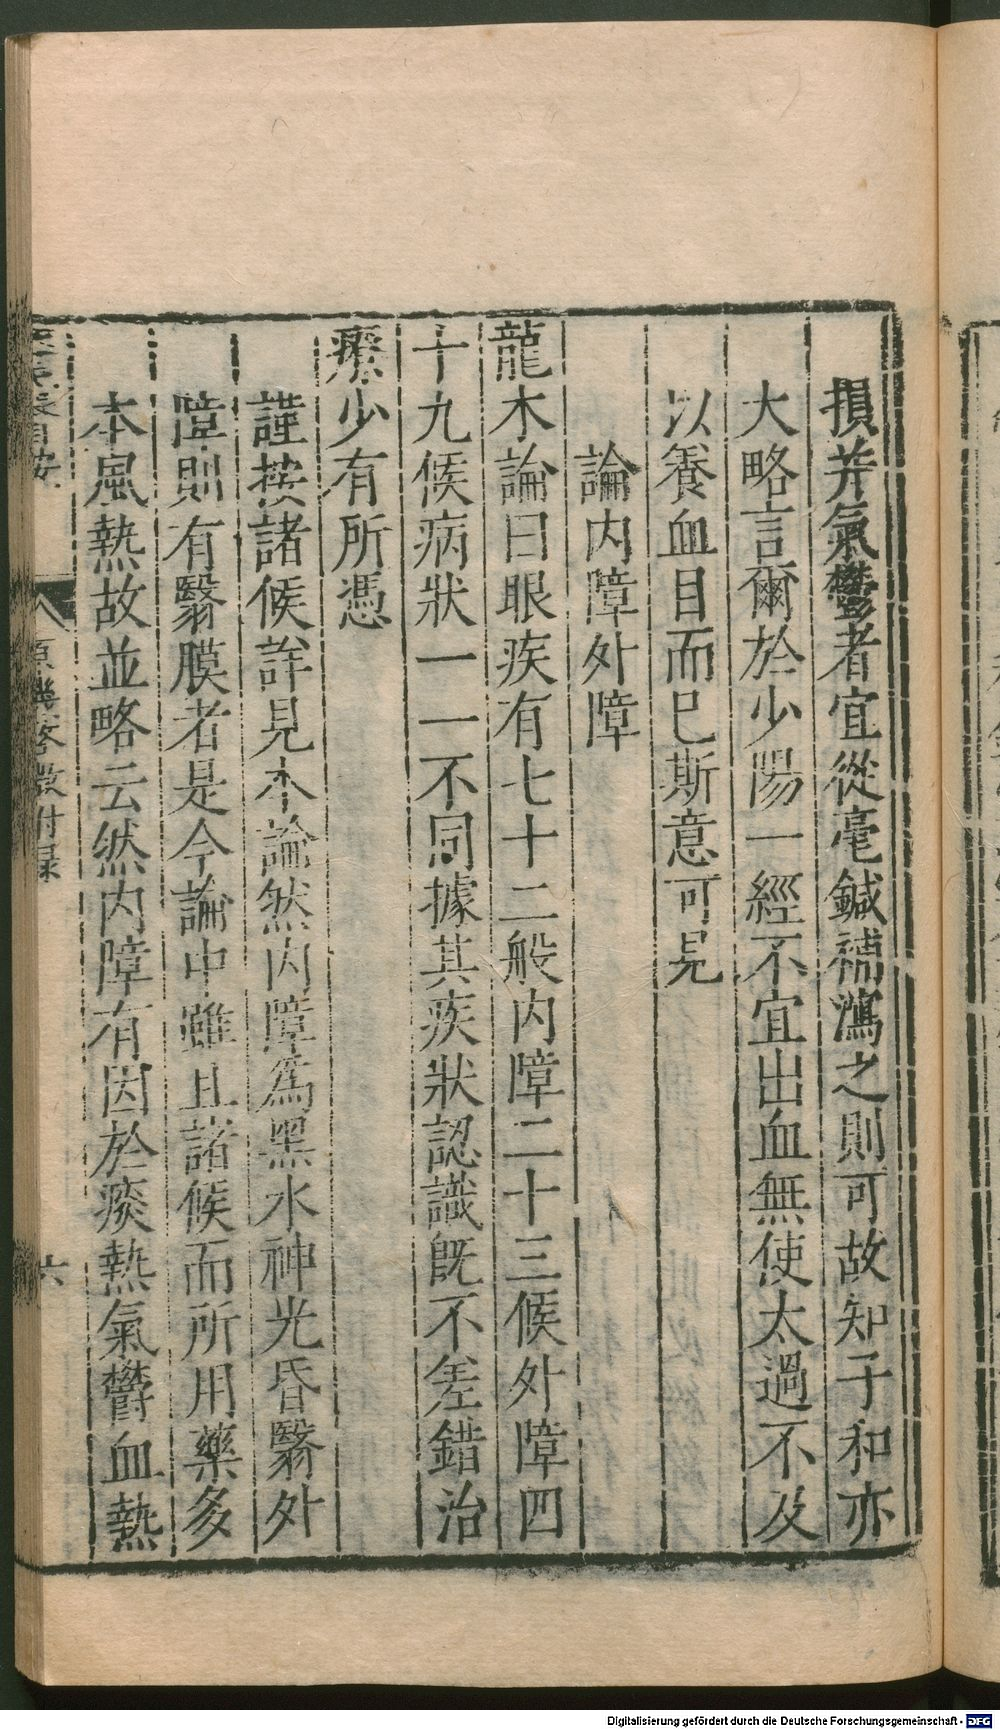 損并氣鬱者宜從毫鍼補瀉之則可故知子和亦
大略言爾於少陽一經不宜出血無使太過不及
以養血目而已斯意可見
論内障外障
龍木論曰眼疾有七十二般内障二十三候外障四
十九候病狀一一不同據其疾狀認識既不差錯治
療少有所憑
謹按諸候詳見本論然内障爲黑水神光昏翳外
障則有翳膜者是今論中雖且諸候而所用藥多
本風熱故並略云然内障有因於痰熱氣鬱血熱
原機啓微附録
六
Digitalisierung gefördert durch die Deutsche Forschungsgemeinschaft - DFG